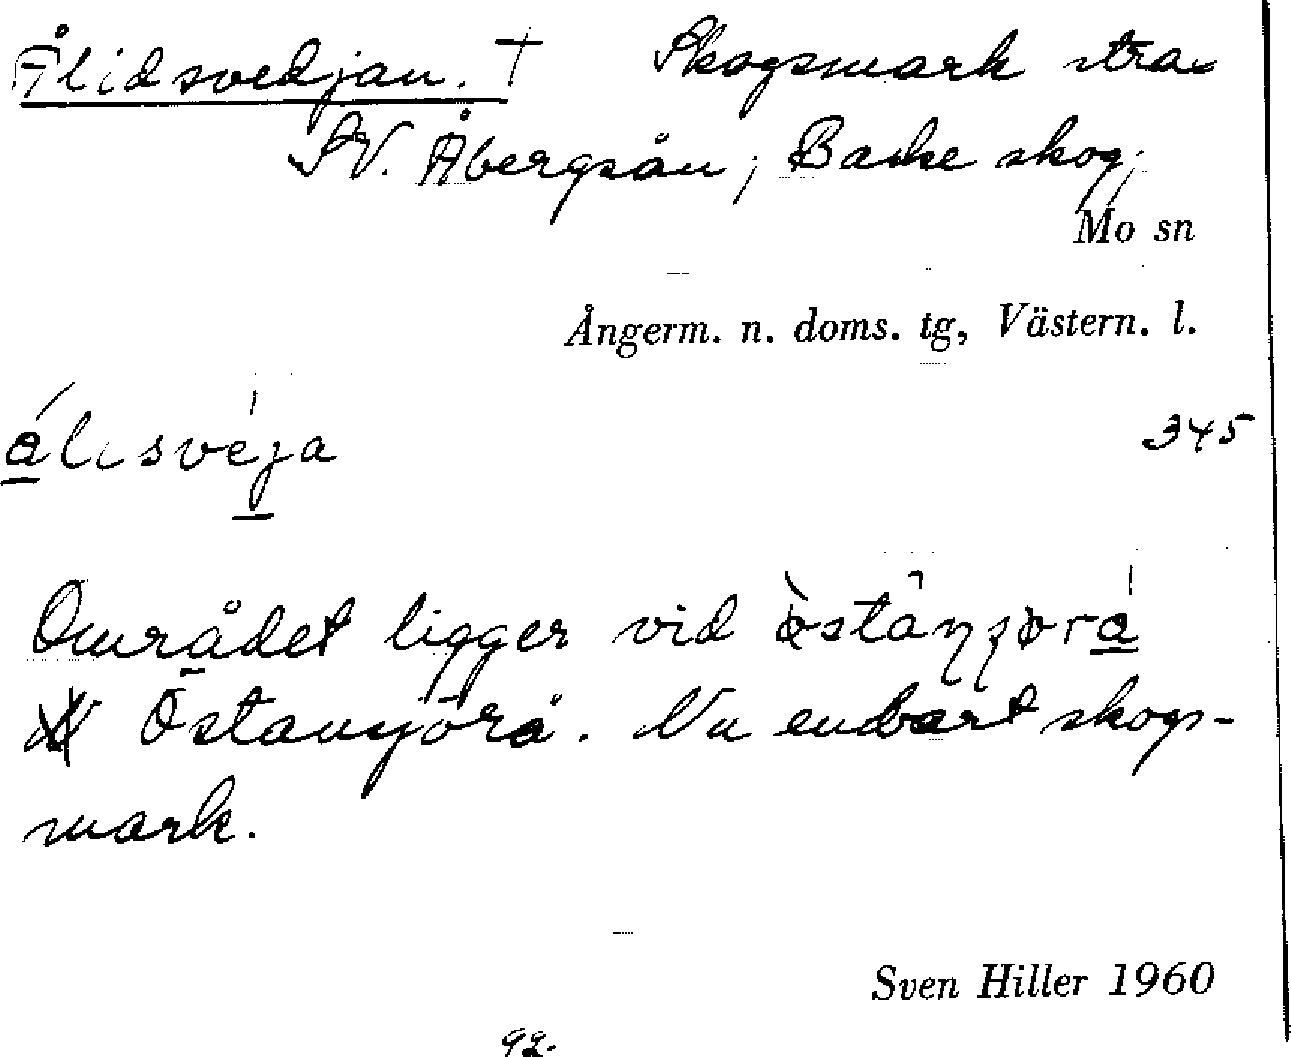 Ålidsvedjan. † Skogsmark strax
SV. Åbergsån; Backe skog;
Mo sn
Ångerm. n. doms. tg, Västern. l.
345
Området ligger vid
Östansjörå. Nu enbart skogs-
mark.
Sven Hiller 1960
92.